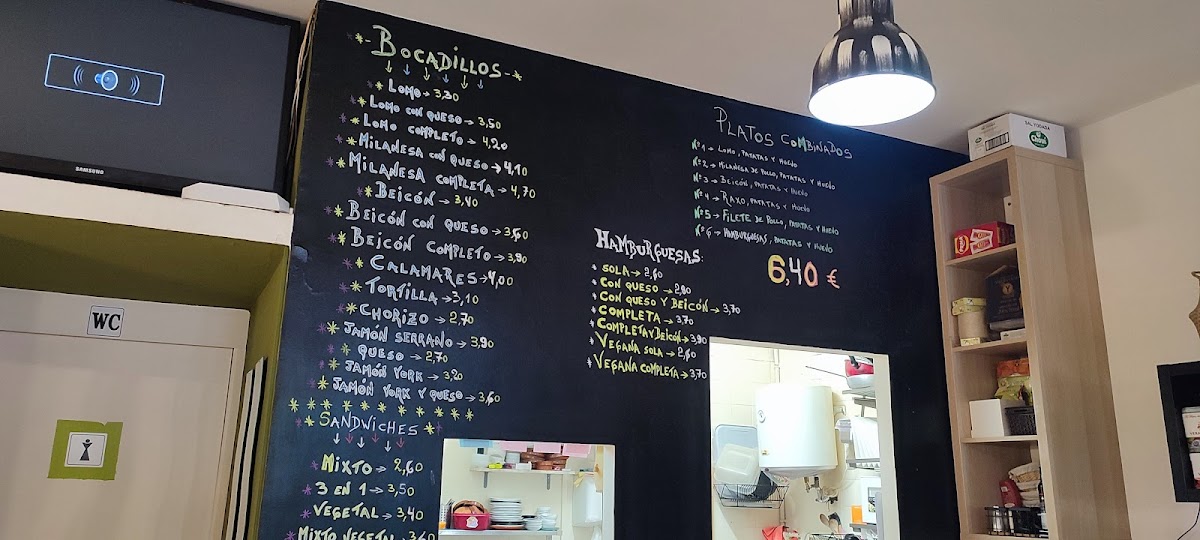 SAMSUNG
WC
-BOCADILLOS-
LOMO → 3,30
LOMO CON QUESO → 3,50
LOMO COMPLETO → 4,20
MILANESA CON QUESO → 4,10
MILANESA COMPLETA → 4,70
BEICÓN → 3,40
BEICÓN CON QUESO → 3,60
BEICÓN COMPLETO → 3,90
CALAMARES → 4,00
TORTILLA → 3,10
CHORIZO → 2,70
JAMÓN SERRANO → 3,90
QUESO → 2,70
JAMÓN YORK → 3,20
JAMÓN YORK Y QUESO → 3,60
SANDWICHES
MIXTO → 2,60
3 EN 1 → 3,50
VEGETAL → 3,40
MIXTO VEGETAL → 3,60
HAMBURGUESAS:
SOLA → 2,60
CON QUESO → 2,80
CON QUESO Y BEICÓN → 3,70
COMPLETA → 3,70
COMPLETA Y BEICÓN → 3,90
VEGANA SOLA → 2,60
VEGANA COMPLETA → 3,70
PLATOS COMBINADOS
Nº1 → LOMO, PATATAS Y HUEVO
Nº2 → MILANESA DE POLLO, PATATAS Y HUEVO
Nº3 → BEICÓN, PATATAS Y HUEVO
Nº4 → RAXO, PATATAS Y HUEVO
Nº5 → FILETE DE POLLO, PATATAS Y HUEVO
Nº6 → HAMBURGUESAS, PATATAS Y HUEVO
6,40 €